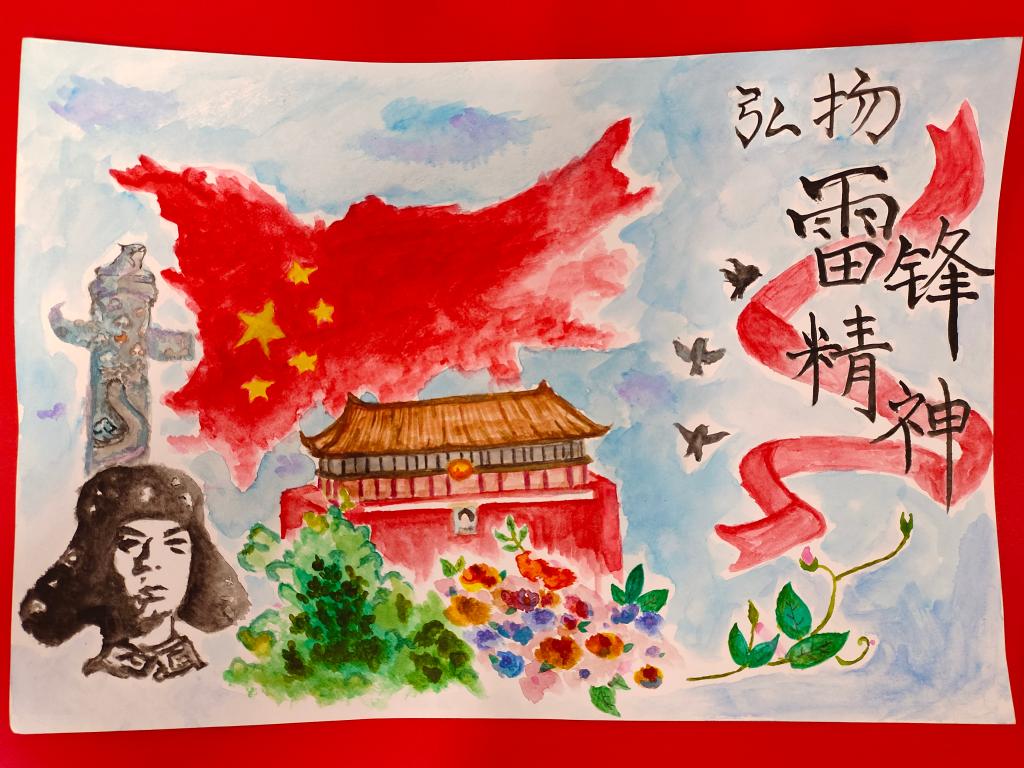 弘扬
雷锋
精神